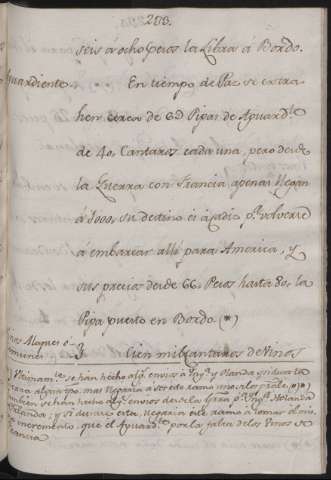 206.
seis á ocho pesos la Libra á Bordo.
Aguardiente. En tiempo de Paz se extra
hen cerca de 6D Pipas de Aguard.te
de 40 Cantaros cada una, pero desde
la Guerra con Francia apenas llegan
á 1000, su destino es á Cadiz p.a volverse
á embarcar alli para America, y
sus precios desde 66. Pesos hasta 80. la
Pipa puesto en Bordo. (*)
Vinos Alaques ó
comunes. 3 Cien mil Cantaros de Vinos
(*) se han hecho alg.s envios á Ing.a y Olanda y si durase
algun tpo. mas llegaria á ser de
tambien se han hecho alg.s envios desde la Grra á Yng.a Holanda
é Irlanda; y si durase esta, llegaria este ramo á tomar al
incremento, que el Aguard.te por la falta de los Vinos de
Francia